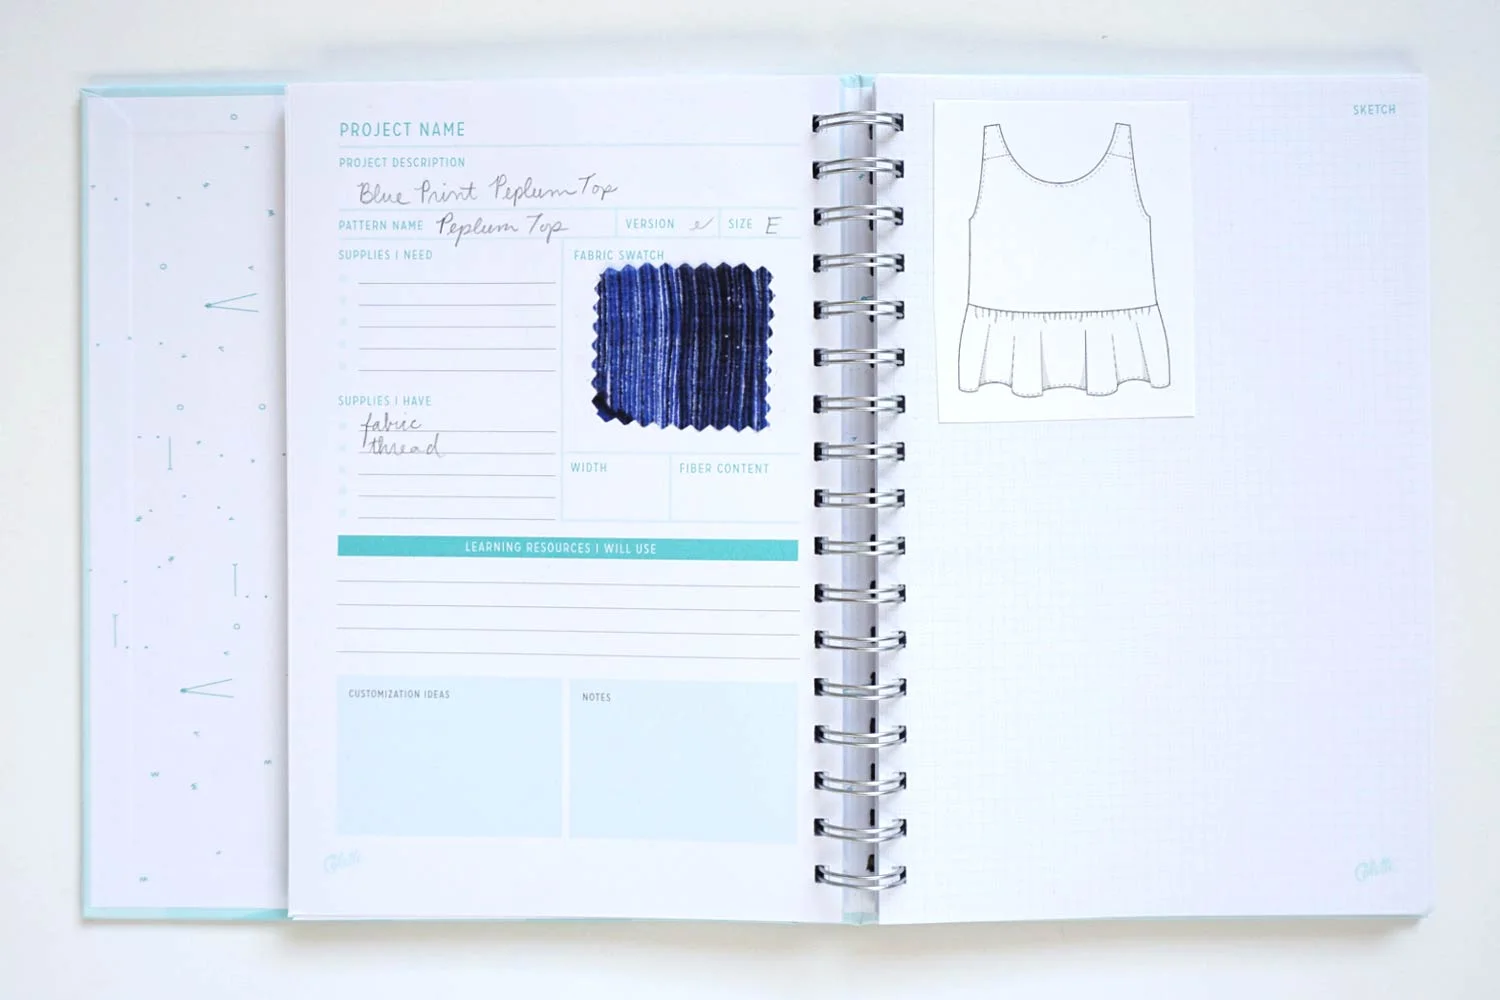 PROJECT NAME
PROJECT DESCRIPTION
Blue Print Peplum Top
PATTERN NAME Peplum Top VERSION SIZE E
SUPPLIES I NEED
FABRIC SWATCH
SUPPLIES I HAVE
fabric
thread
WIDTH FIBER CONTENT
LEARNING RESOURCES I WILL USE
CUSTOMIZATION IDEAS
NOTES
Colette
SKETCH
Colette